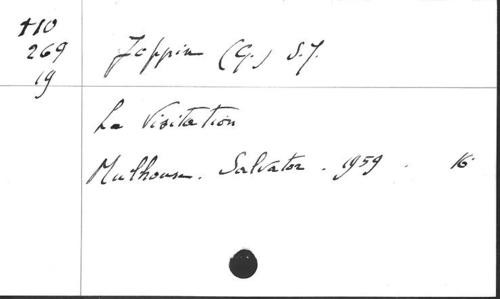 +10
269
19
Joppin (G.) S.J.
La Visitation
Mulhouse. Salvator. 1959. 16